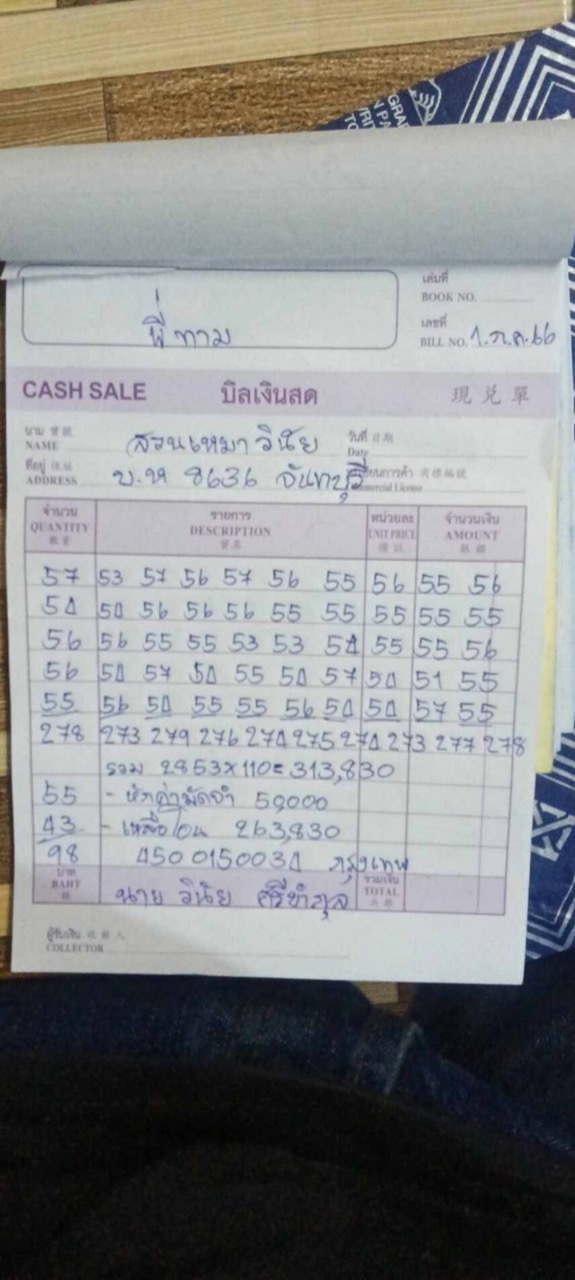 GRAI
N PA
RIT
TO
พี่ทาม
เล่มที่
BOOK NO.
เลขที่
BILL NO. 1.ก.ค.66
CASH SALE บิลเงินสด 現兌單
นาม 寶號
NAME สวนเหมาวินัย
วันที่ 日期
Date
ที่อยู่ 住址
ADDRESS บ.ห 8636 จันทบุรี
ทะเบียนการค้า 商標編號
Commercial License
จำนวน รายการ หน่วยละ จำนวนเงิน
QUANTITY DESCRIPTION UNIT PRICE AMOUNT
數量 貨名 價錢 銀額
57 53 57 56 57 56 55 56 55 56
54 54 56 56 56 55 55 55 55 55
56 56 55 55 53 53 54 55 55 56
56 54 57 54 55 54 57 54 51 55
55 56 54 55 55 56 54 54 57 55
278 273 279 276 274 275 274 273 277 278
รวม 2853x110=313,830
55 - หักค่ามัดจำ 50,000
43 - เหลือโอน 263,830
98 4500150034 กรุงเทพ
บาท
BAHT
นาย วินัย ศรีขำกุล
รวมเงิน
TOTAL
ผู้รับเงิน 收銀人
COLLECTOR